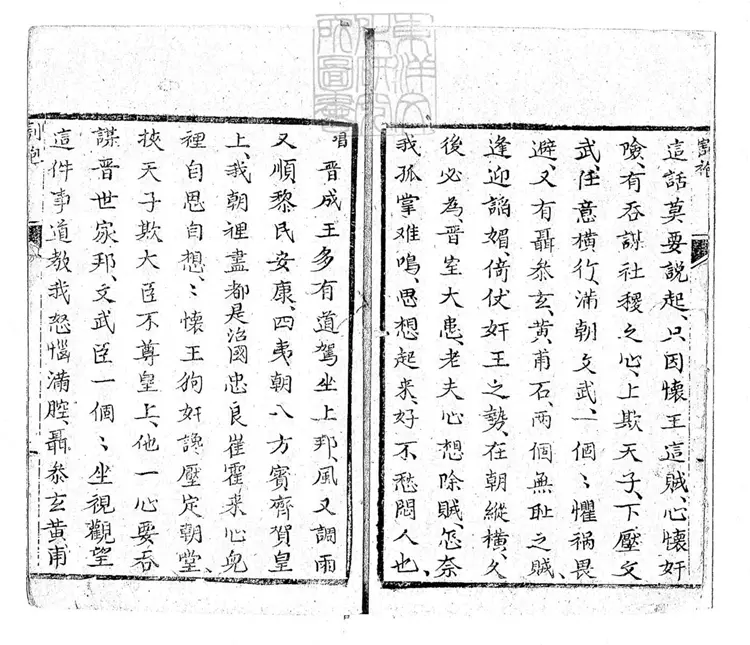 割袍
這話莫要說起、只因懷王這賊、心懷奸
險、有吞謀社稷之心、上欺天子、下壓文
武、任意橫行、滿朝文武、一個〻懼禍畏
避、又有聶叅玄、黃甫石、兩個無耻之賊、
逢迎諂媚、倚伏奸王之勢、在朝縱橫、久
後必為晋室大患、老夫心想除賊、怎奈
我孤掌难鳴、思想起来、好不愁悶人也、
唱 晋成王多有道駕坐上邦、風又調雨
又順黎民安康、四夷朝八方賓齊賀皇
上、我朝裡盡都是治國忠良崔霍来心兒
裡自思自想、〻懷王狗奸讒壓定朝堂、
挾天子欺大臣不尊皇上、他一心要吞
謀晋世家邦、文武臣一個〻坐視觀望
這件事道教我怒惱滿腔、聶叅玄黃甫
割袍
東洋文化研究所圖書